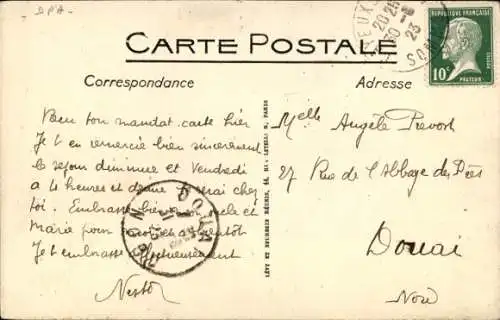 CARTE POSTALE
RÉPUBLIQUE FRANÇAISE
10c
PASTEUR
Correspondance
Adresse
ton mandat carte hier
Je t'en remercie bien sincèrement
le séjour diminue et Vendredi
à 4 heures et demie serai chez
toi. Embrasse bien oncle et
Marie pour moi bientôt
Je t'embrasse affectueusement
Nestor
LÉVY ET NEURDEIN RÉUNIS, 44, PARIS
Melle Angèle Prevost
27 Rue de l'Abbaye des Prés
Douai
Nord
DOUAI
NORD
20 25
30
23